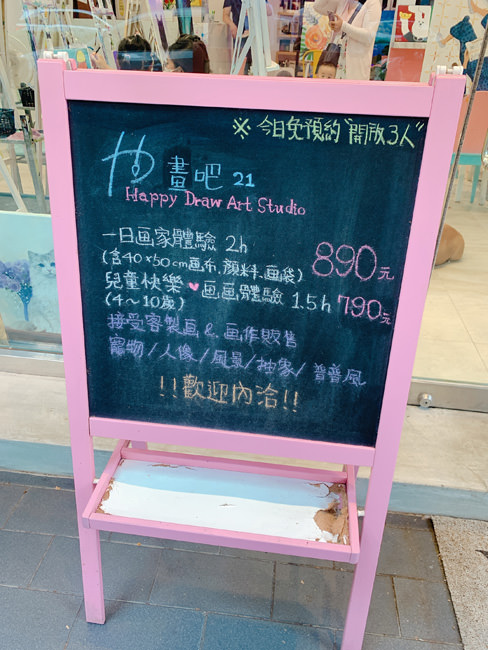 ※ 今日免預約"開放3人"
畫吧 21
Happy Draw Art Studio
一日画家體驗 2h 890元
(含40×50cm画布、顏料、画袋)
兒童快樂♥画画體驗 1.5h 790元
(4~10歲)
接受客製画 & 画作販售
寵物/人像/風景/抽象/普普風
!!歡迎內洽!!